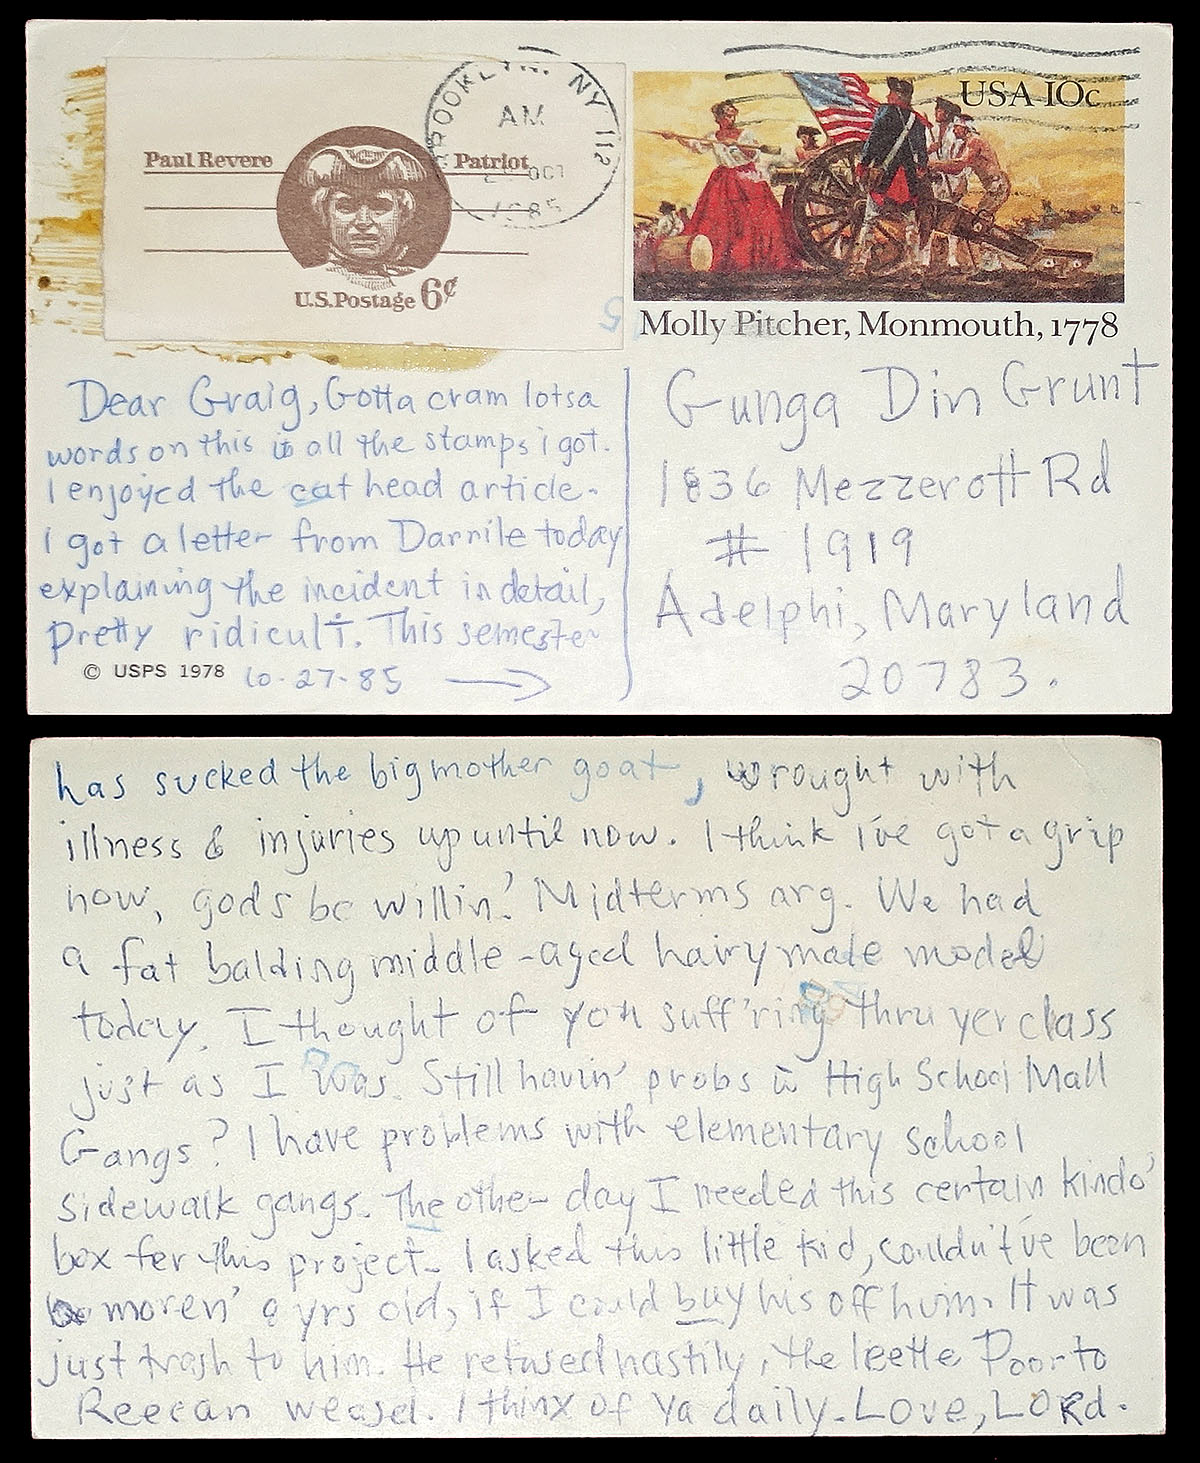 Paul Revere Patriot
U.S. Postage 6¢
BROOKLYN, NY 112
AM
OCT
1985
USA 10c
Molly Pitcher, Monmouth, 1778
Dear Graig, Gotta cram lotsa
words on this is all the stamps i got.
I enjoyed the cat head article.
I got a letter from Darrile today
explaining the incident in detail,
pretty ridicult. This semester
© USPS 1978 10-27-85
Gunga Din Grunt
1836 Mezzerott Rd
# 1919
Adelphi, Maryland
20783.
has sucked the big mother goat, wrought with
illness & injuries up until now. I think i've got a grip
now, gods be willin'. Midterms arg. We had
a fat balding middle-aged hairy male model
today. I thought of you suff'ring thru yer class
just as I was. Still havin' probs w High School Mall
Gangs? I have problems with elementary school
sidewalk gangs. The other day I needed this certain kindo'
box fer this project. I asked this little kid, couldn't've been
moren' 9 yrs old, if I could buy his off him. It was
just trash to him. He refused nastily, the leetle Poorto
Reecan weasel. I think of ya daily. Love, LORd.